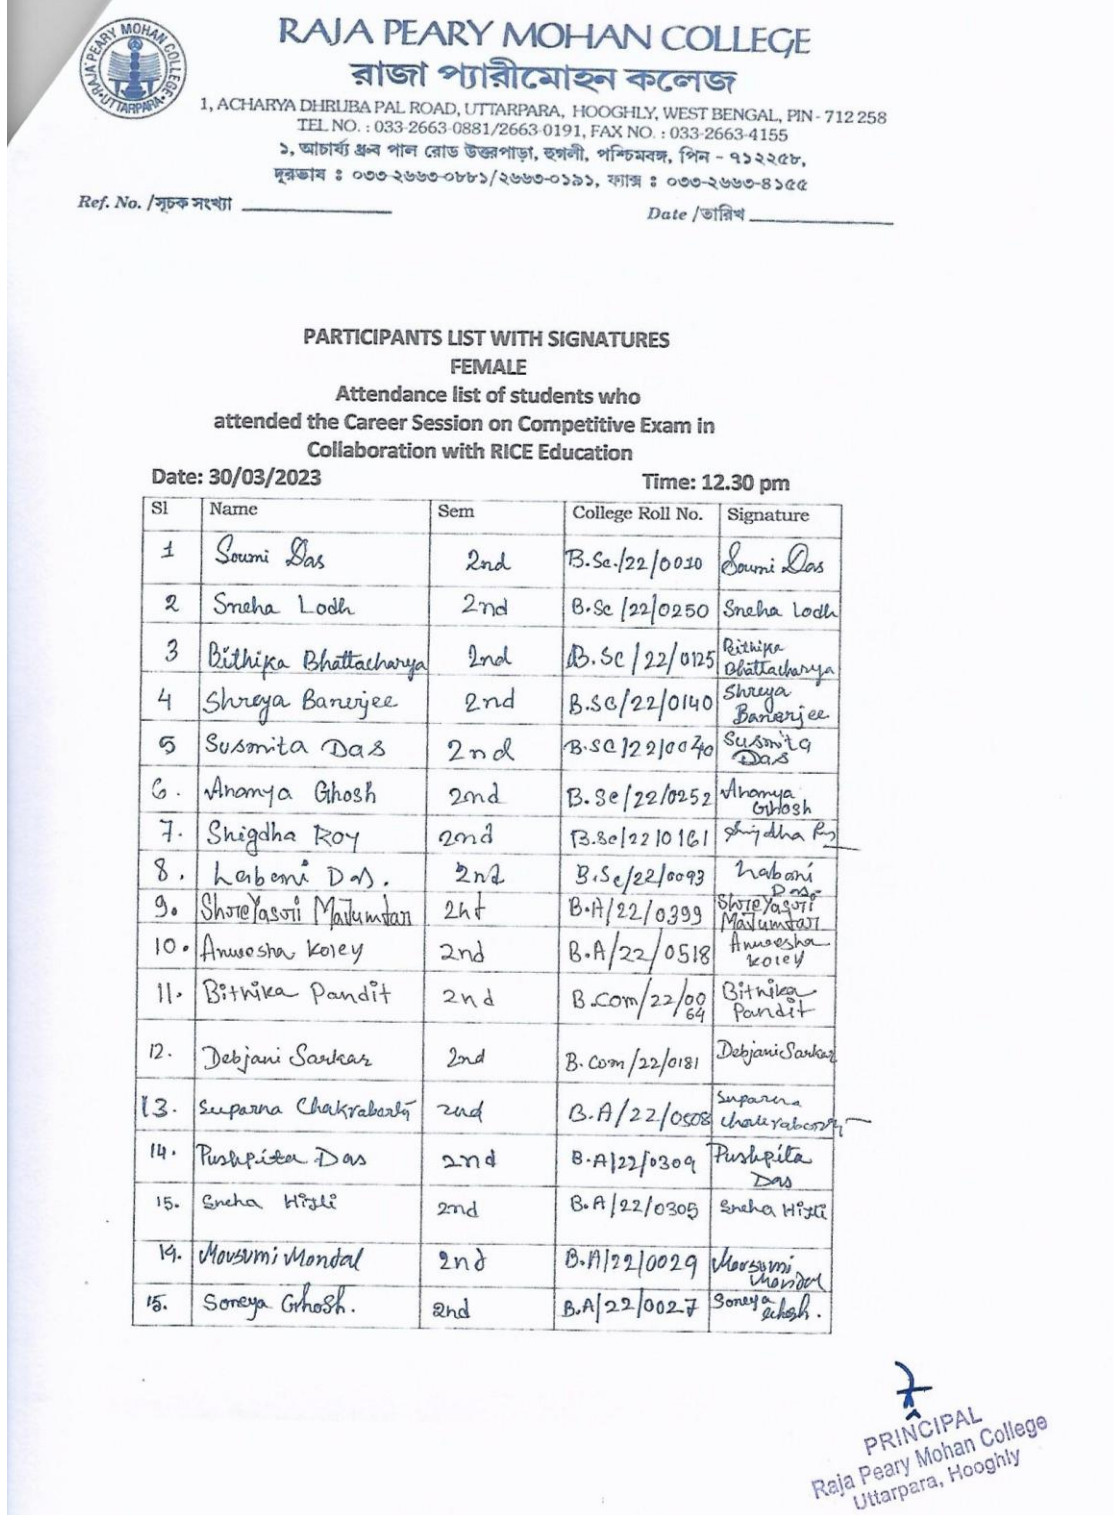 RAJA PEARY MOHAN COLLEGE
UTTARPARA
RAJA PEARY MOHAN COLLEGE
রাজা প্যারীমোহন কলেজ
1, ACHARYA DHRUBA PAL ROAD, UTTARPARA, HOOGHLY, WEST BENGAL, PIN - 712 258
TEL NO. : 033-2663-0881/2663-0191, FAX NO. : 033-2663-4155
১, আচার্য্য ধ্রুব পাল রোড উত্তরপাড়া, হুগলী, পশ্চিমবঙ্গ, পিন - ৭১২২৫৮,
দূরভাষ : ০৩৩-২৬৬৩-০৮৮১/২৬৬৩-০১৯১, ফ্যাক্স : ০৩৩-২৬৬৩-৪১৫৫
Ref. No. /সূচক সংখ্যা Date /তারিখ
PARTICIPANTS LIST WITH SIGNATURES
FEMALE
Attendance list of students who
attended the Career Session on Competitive Exam in
Collaboration with RICE Education
Date: 30/03/2023 Time: 12.30 pm
Sl Name Sem College Roll No. Signature
1 Soumi Das 2nd B.Sc./22/0010 Soumi Das
2 Sneha Lodh 2nd B.Sc /22/0250 Sneha Lodh
3 Bithika Bhattacharya 2nd B.Sc /22/0125 Bithika Bhattacharya
4 Shreya Banerjee 2nd B.SC/22/0140 Shreya Banerjee
5 Susmita Das 2nd B.SC/22/0040 Susmita Das
6. Ananya Ghosh 2nd B.Sc/22/0252 Ananya Ghosh
7. Snigdha Roy 2nd B.Sc/22/0161 Snigdha Roy
8. Labani Das. 2nd B.Sc/22/0093 Labani Das.
9. ShreYasori MaJumdar 2nd B.A/22/0399 ShreYasori MaJumdar
10. Anwesha Koley 2nd B.A/22/0518 Anwesha Koley
11. Bithika Pandit 2nd B.Com/22/0064 Bithika Pandit
12. Debjani Sarkar 2nd B.Com/22/0181 Debjani Sarkar
13. Suparna Chakraborty 2nd B.A/22/0508 Suparna Chakraborty
14. Pushpita Das 2nd B.A/22/0309 Pushpita Das
15. Sneha 2nd B.A/22/0305 Sneha
14. Mousumi Mondal 2nd B.A/22/0029 Mousumi Mondal
15. Soneya Ghosh. 2nd B.A/22/0027 Soneya Ghosh.
PRINCIPAL
Raja Peary Mohan College
Uttarpara, Hooghly